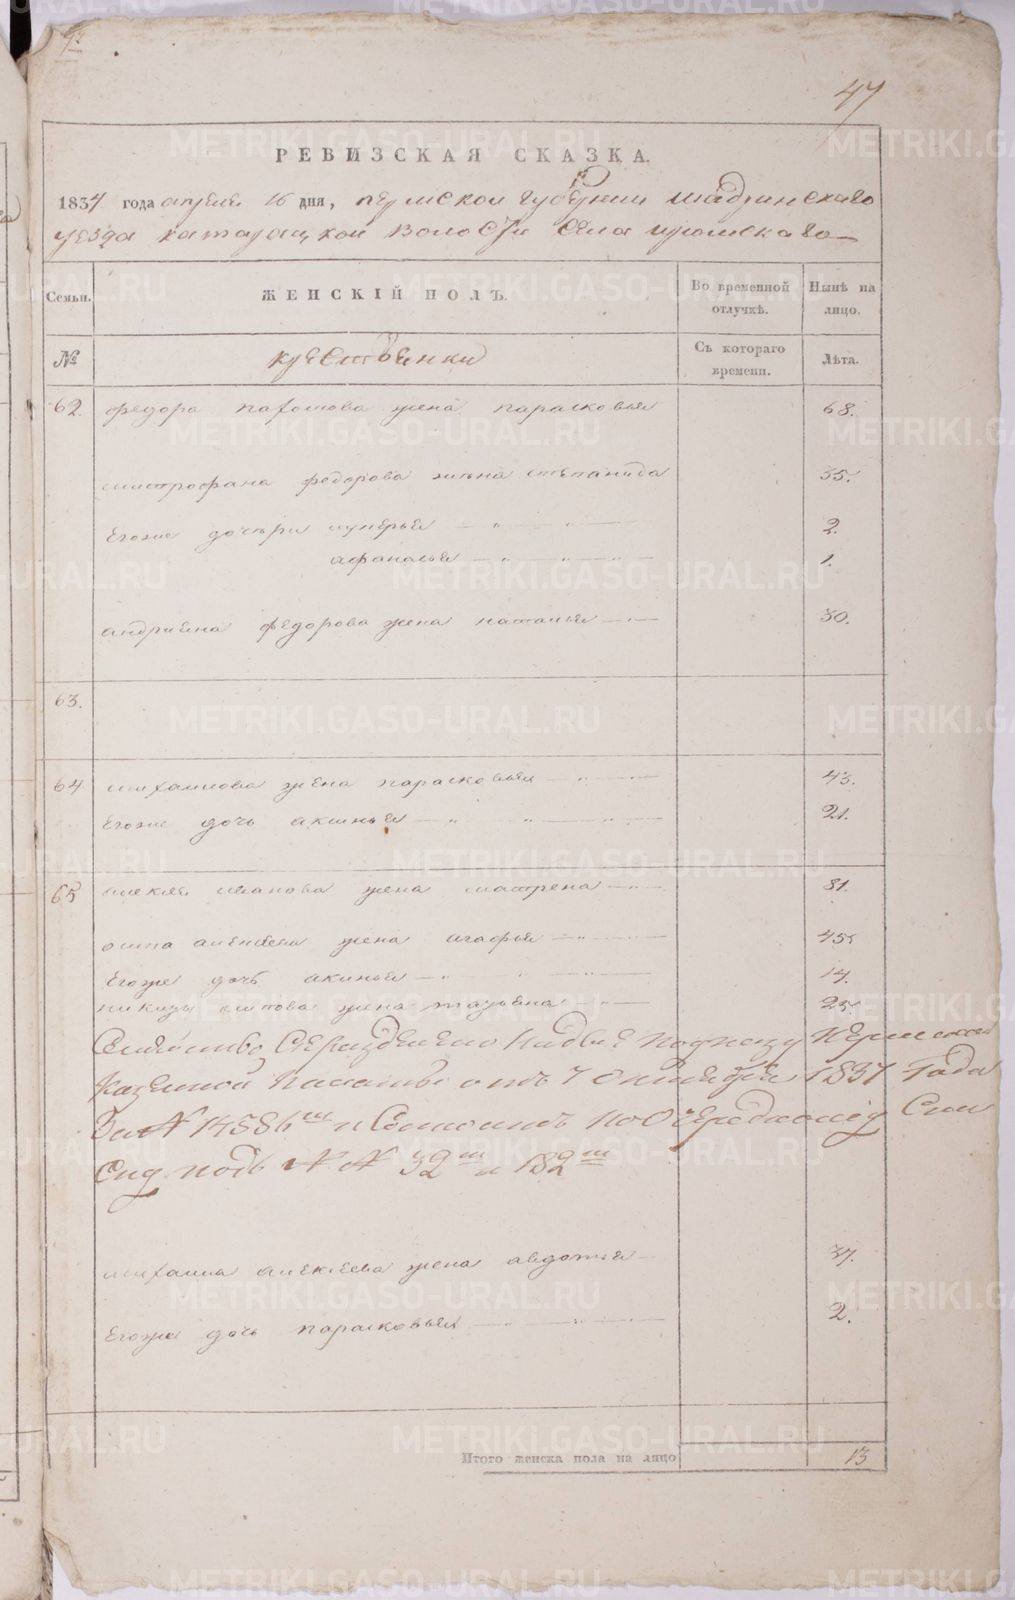 47
РЕВИЗСКАЯ СКАЗКА.
1834 года апреля 16 дня, пермской губернии шадринскаго
уезда катарацкой волости села
Семьи. ЖЕНСКІЙ ПОЛЪ. Во временной отлучкѣ. Нынѣ на лицо.
№ крестьянки Съ котораго времени. Лѣта.
62. федора пахомова жена парасковья 68.
митрофана федорова жена стѣпанида 35.
Егоже дочѣри лукерья 2.
афанасья 1.
андриѣна федорова жена наталья 30.
63.
64 михаилова жена парасковья 43.
Егоже дочь аксинья 21.
65 иванова жена матрена 81.
осипа алексѣева жена агафья 45
Егоже дочь акинья 14.
никиты осипова жена татьяна 25.
Семѣйство Сѣ раздѣлено На двѣ по указу Пермской
Казенной Палаты отъ 7 октября 1837 Года
За № 14586м и Состоитъ по Очередному Спи
Ску подъ № № 32м и 182м
михаила алексѣева жена авдотья 37.
Егоже дочь парасковья 2.
Итого женска пола на лицо 13
METRIKI.GASO-URAL.RU